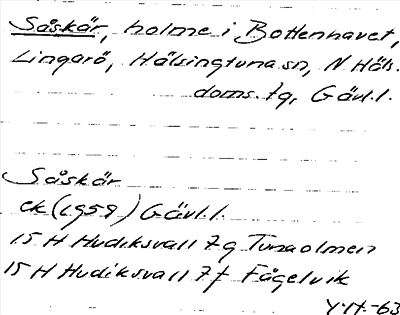 Såskär, holme i Bottenhavet,
Lingarö, Hälsingtuna sn, N Häls.
doms. tg, Gävl. l.
Såskär
ek (1959) Gävl. l.
15 H Hudiksvall 7g Tunaolmen
15 H Hudiksvall 7f Fågelvik
Y.H.-63